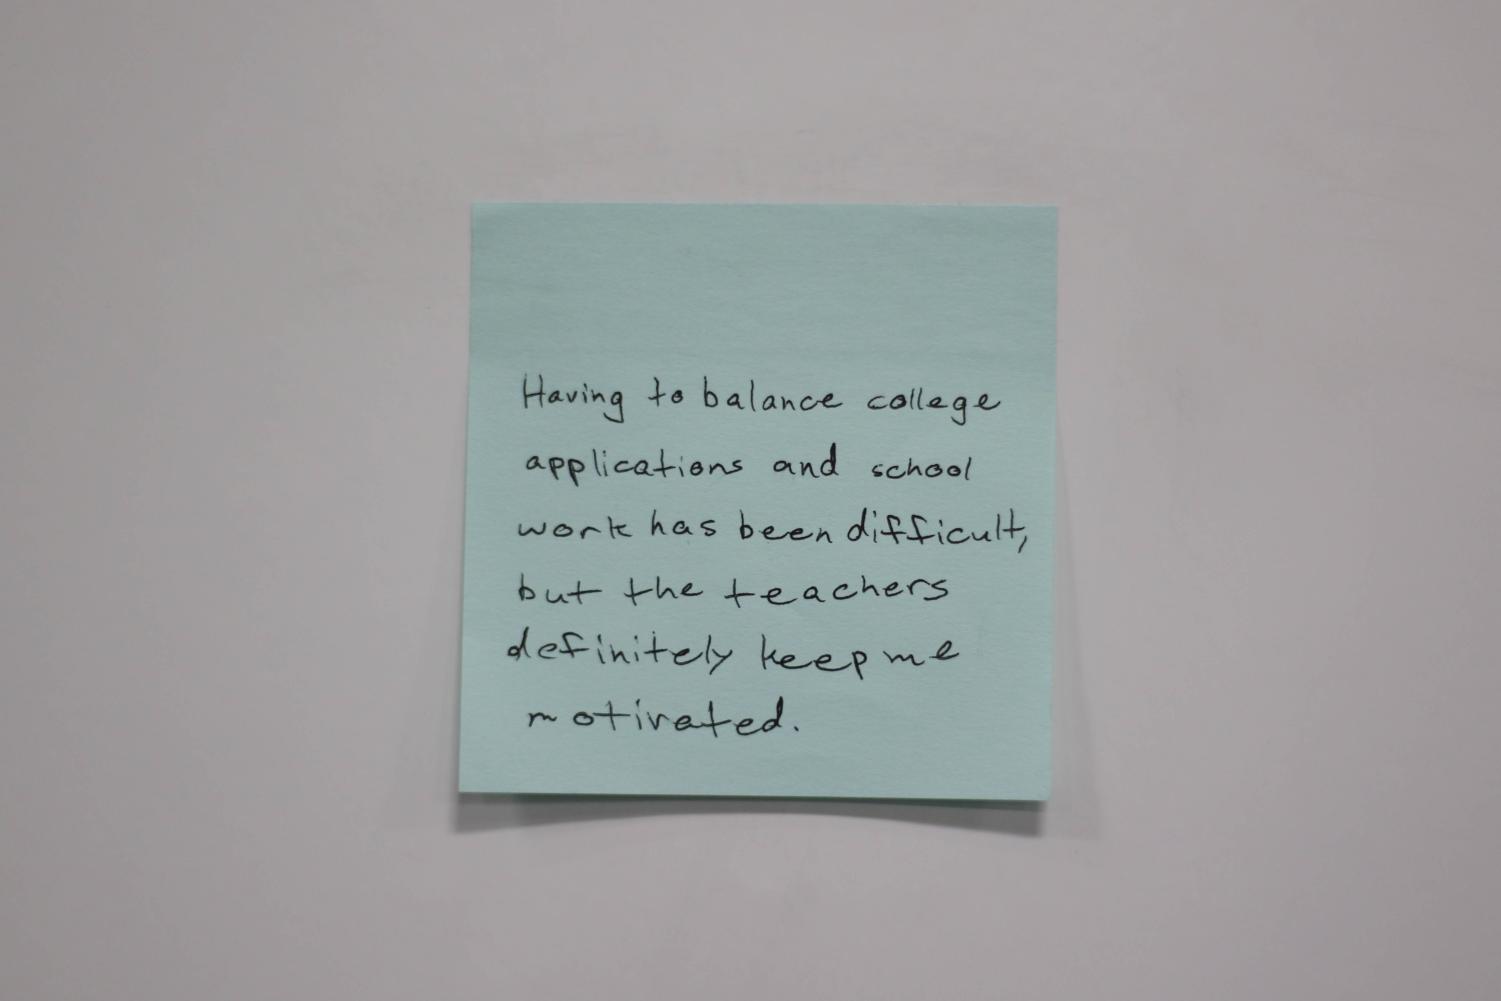 Having to balance college
applications and school
work has been difficult,
but the teachers
definitely keep me
motivated.